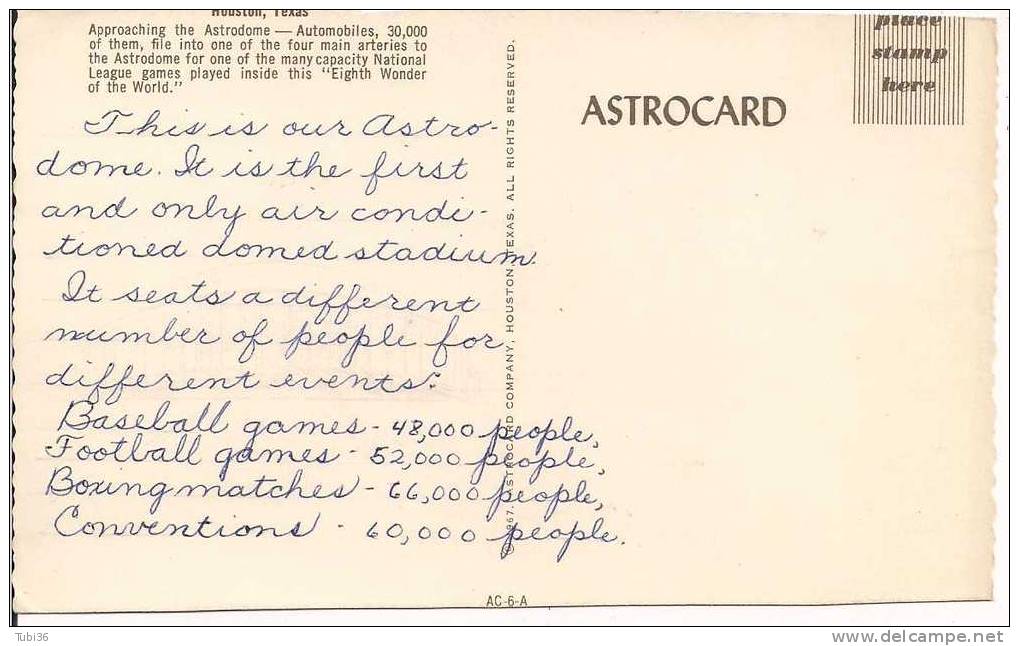 Houston, Texas
Approaching the Astrodome — Automobiles, 30,000
of them, file into one of the four main arteries to
the Astrodome for one of the many capacity National
League games played inside this "Eighth Wonder
of the World."
This is our Astro-
dome. It is the first
and only air condi-
tioned domed stadium.
It seats a different
number of people for
different events:
Baseball games - 48,000 people,
Football games - 52,000 people,
Boxing matches - 66,000 people,
Conventions - 60,000 people.
© 1967. ASTROCARD COMPANY, HOUSTON, TEXAS. ALL RIGHTS RESERVED.
ASTROCARD
place
stamp
here
AC-6-A
Tubi36
delcampe.net